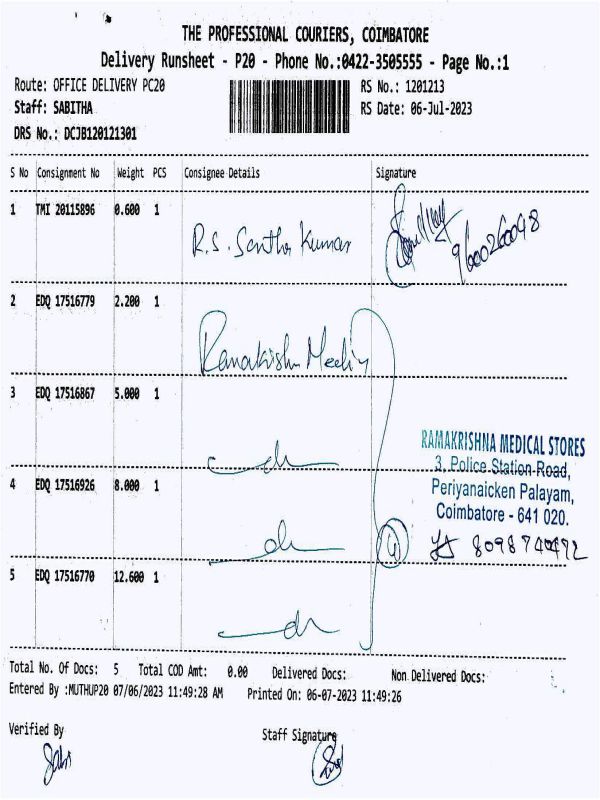 THE PROFESSIONAL COURIERS, COIMBATORE
Delivery Runsheet - P20 - Phone No.:0422-3505555 - Page No.:1
Route: OFFICE DELIVERY PC20 RS No.: 1201213
Staff: SABITHA RS Date: 06-Jul-2023
DRS No.: DCJB120121301
S No Consignment No Weight PCS Consignee Details Signature
1 TMI 20115896 0.600 1
R.S. Santha Kumar 9600260048
2 EDQ 17516779 2.200 1
3 EDQ 17516867 5.000 1
RAMAKRISHNA MEDICAL STORES
3, Police Station Road,
4 EDQ 17516926 8.000 1 Periyanaicken Palayam,
Coimbatore - 641 020.
do (4)
5 EDQ 17516770 12.600 1
do
Total No. Of Docs: 5 Total COD Amt: 0.00 Delivered Docs: Non Delivered Docs:
Entered By :MUTHUP20 07/06/2023 11:49:28 AM Printed On: 06-07-2023 11:49:26
Verified By Staff Signature